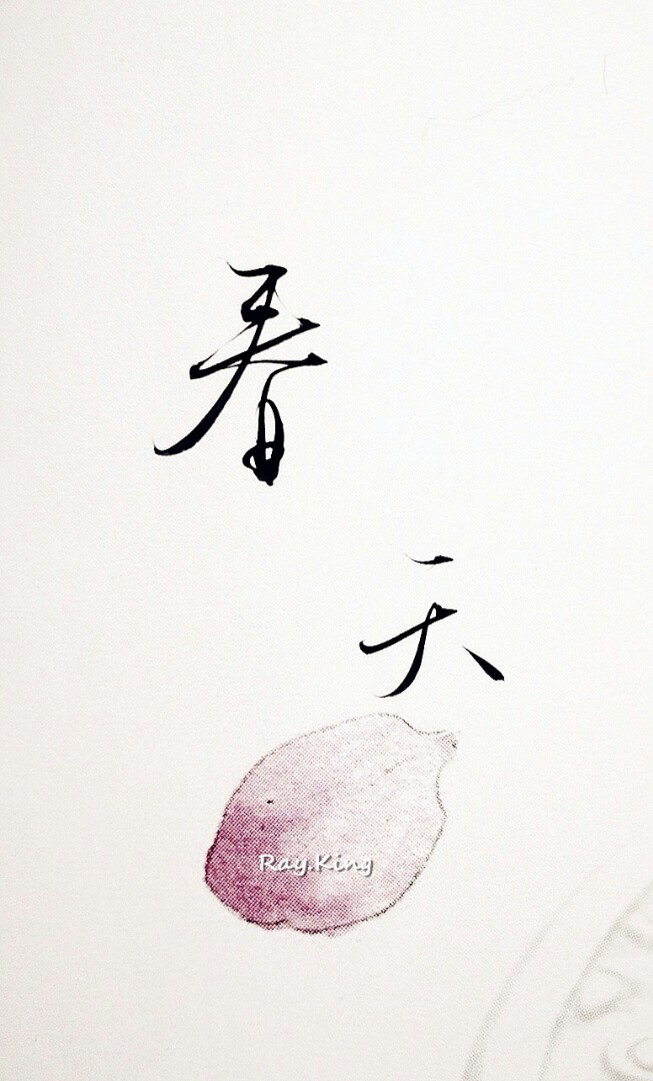 春
天
Ray.King